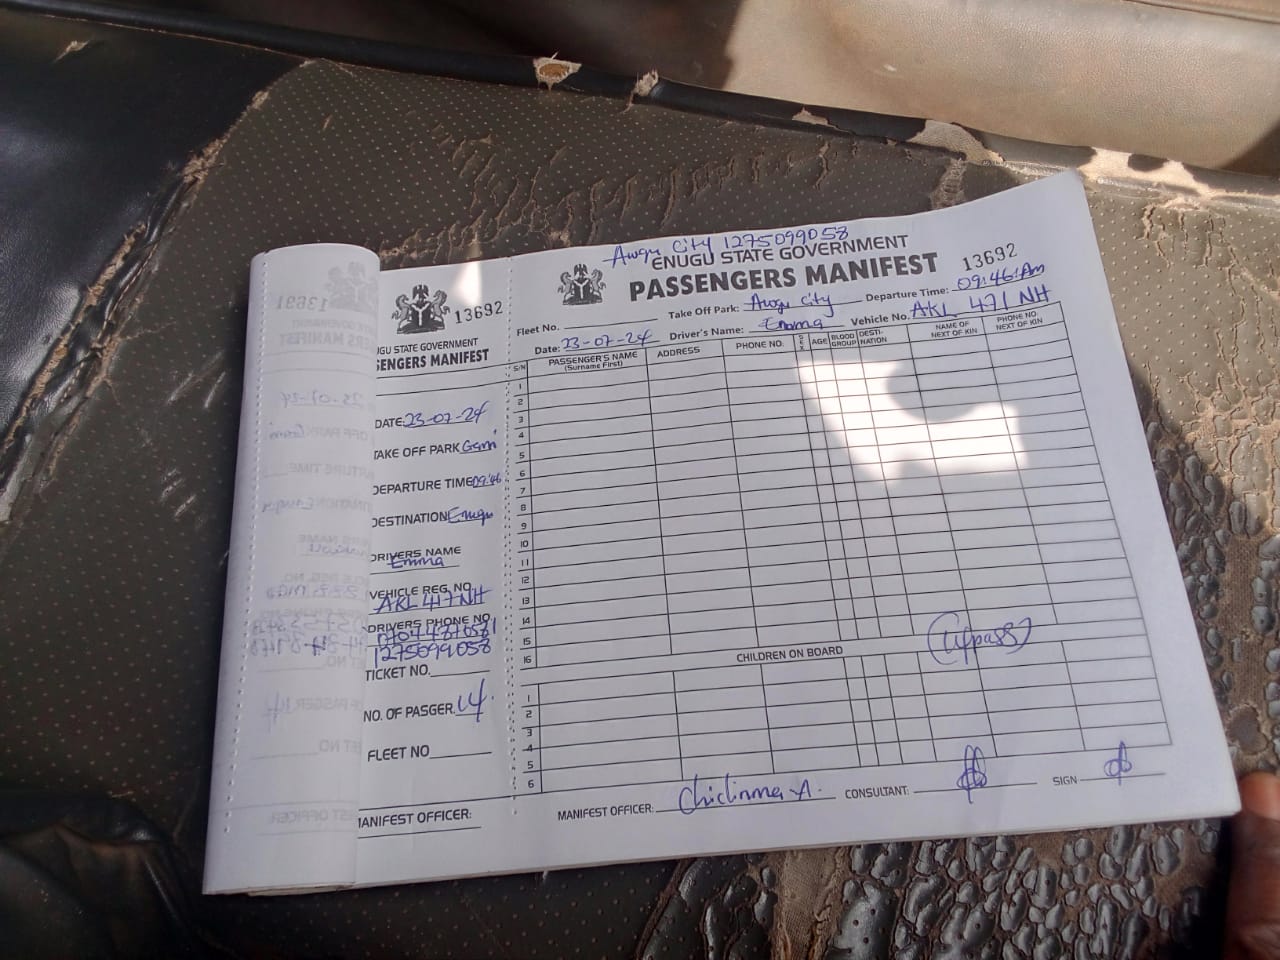 13691
13692
GU STATE GOVERNMENT
SENGERS MANIFEST
DATE: 23-07-24
TAKE OFF PARK
DEPARTURE TIME 09:46
DESTINATION Enugu
DRIVERS NAME
Emma
VEHICLE REG. NO
AKL 417 NH
DRIVERS PHONE NO
1275099058
TICKET NO.
NO. OF PASGER. 14
FLEET NO
MANIFEST OFFICER:
Awgu City 1275099058
ENUGU STATE GOVERNMENT
PASSENGERS MANIFEST
13692
Fleet No. Take Off Park: Awgu City Departure Time: 09:46:Am
Date: 23-07-24 Driver's Name: Emma Vehicle No. AKL 471 NH
S/N PASSENGER'S NAME (Surname First) ADDRESS PHONE NO. SEX AGE BLOOD GROUP DESTI-NATION NAME OF NEXT OF KIN PHONE NO. NEXT OF KIN
1
2
3
4
5
6
7
8
9
10
11
12
13
14
15
16
CHILDREN ON BOARD
1
2
3
4
5
6
MANIFEST OFFICER: Chidinma A. CONSULTANT: SIGN